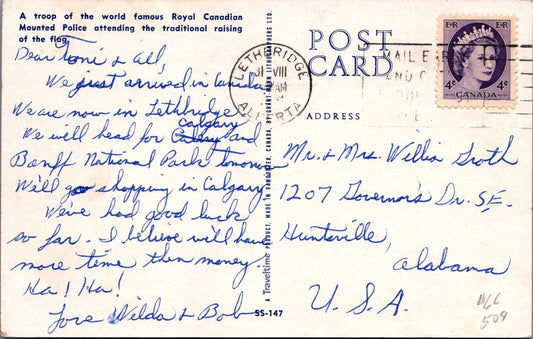 A troop of the world famous Royal Canadian
Mounted Police attending the traditional raising
of the flag.
Dear Toni & All,
We just arrived in Canada
We are now in Lethbridge
We will head for Calgary and
Banff National Park tomorrow
We'll go shopping in Calgary
We've had good luck
so far. I believe will have
more time then money.
Ha! Ha!
Love Wilda & Bob
SS-147
A Traveltime PRODUCT, MADE IN VANCOUVER, CANADA, BY
LETHBRIDGE
31 VIII
AM
ALBERTA
POST
CARD
ADDRESS
E R
E R
4¢
4¢
CANADA
Mr. & Mrs. Willia Groth
1207 Governor's Dr. SE.
Huntsville,
Alabama
U. S. A.
509